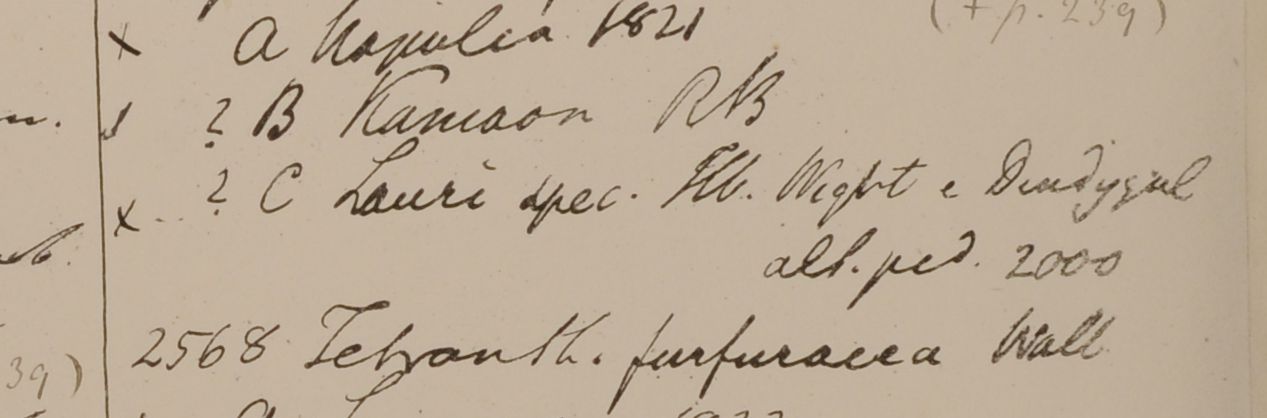 (+ p. 239)
x A Napalia 1821
n. ? B Kamaon RB
x ? C Lauri spec. Hb. Wight e Dindygul
alt. ped. 2000
2568 Tetranth. furfuracea Wall
39)